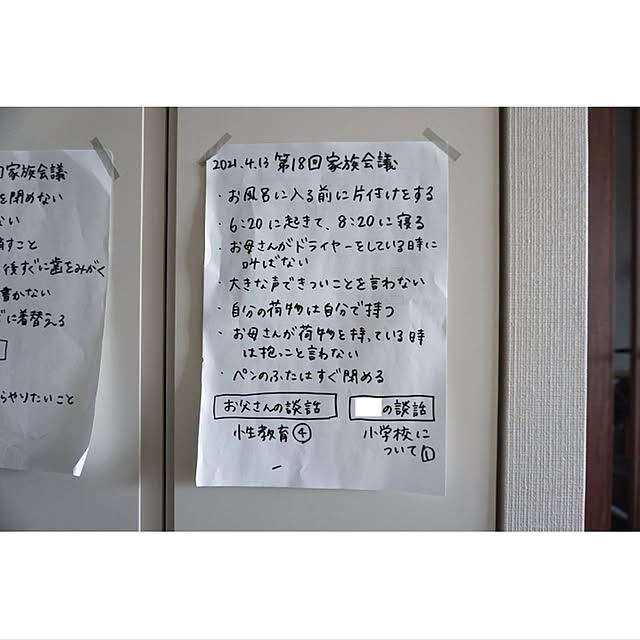 回家族会議
を閉めない
ない
すこと
後すぐに歯をみがく
書かない
に着替える
らやりたいこと
2021.4.13 第18回家族会議
・お風呂に入る前に片付けをする
・6:20に起きて、8:20に寝る
・お母さんがドライヤーをしている時に
叫ばない
・大きな声できついことを言わない
・自分の荷物は自分で持つ
・お母さんが荷物を持っている時
は抱っこと言わない
・ペンのふたはすぐ閉める
お父さんの談話
性教育④
の談話
小学校に
ついて①